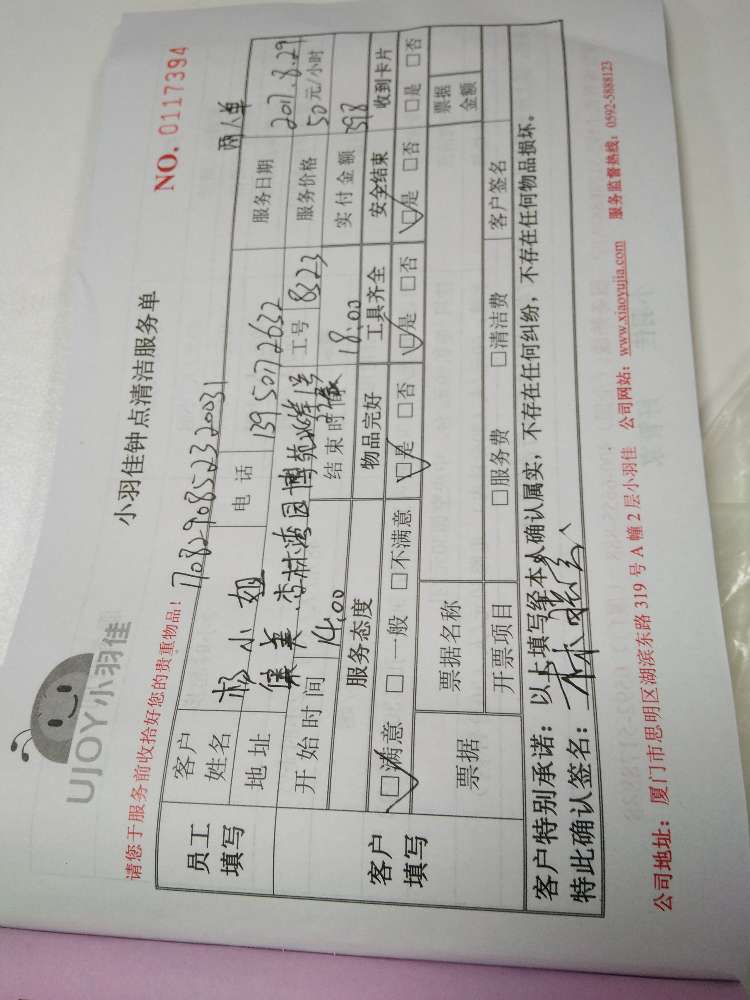 UJOY小羽佳
小羽佳钟点清洁服务单
NO. 0117394
请您于服务前收拾好您的贵重物品！
1708290852320031
两人单
员工填写
客户姓名 杨小姐 电话 13950172632 服务日期 2017.8.29
地址 杏林湾园博苑 工号 8323 服务价格 50元/小时
开始时间 14:00 结束时间 18:00 实付金额 398
客户填写
服务态度 物品完好 工具齐全 安全结束 收到卡片
□满意 □一般 □不满意 □是 □否 □是 □否 □是 □否 □是 □否
票据 票据名称 票据金额
开票项目 □服务费 □清洁费 客户签名
客户特别承诺：以上填写经本人确认属实，不存在任何纠纷，不存在任何物品损坏。
特此确认签名：
公司地址：厦门市思明区湖滨东路 319 号 A 幢 2 层小羽佳 公司网站：www.xiaoyujia.com 服务监督热线：0592-5888123